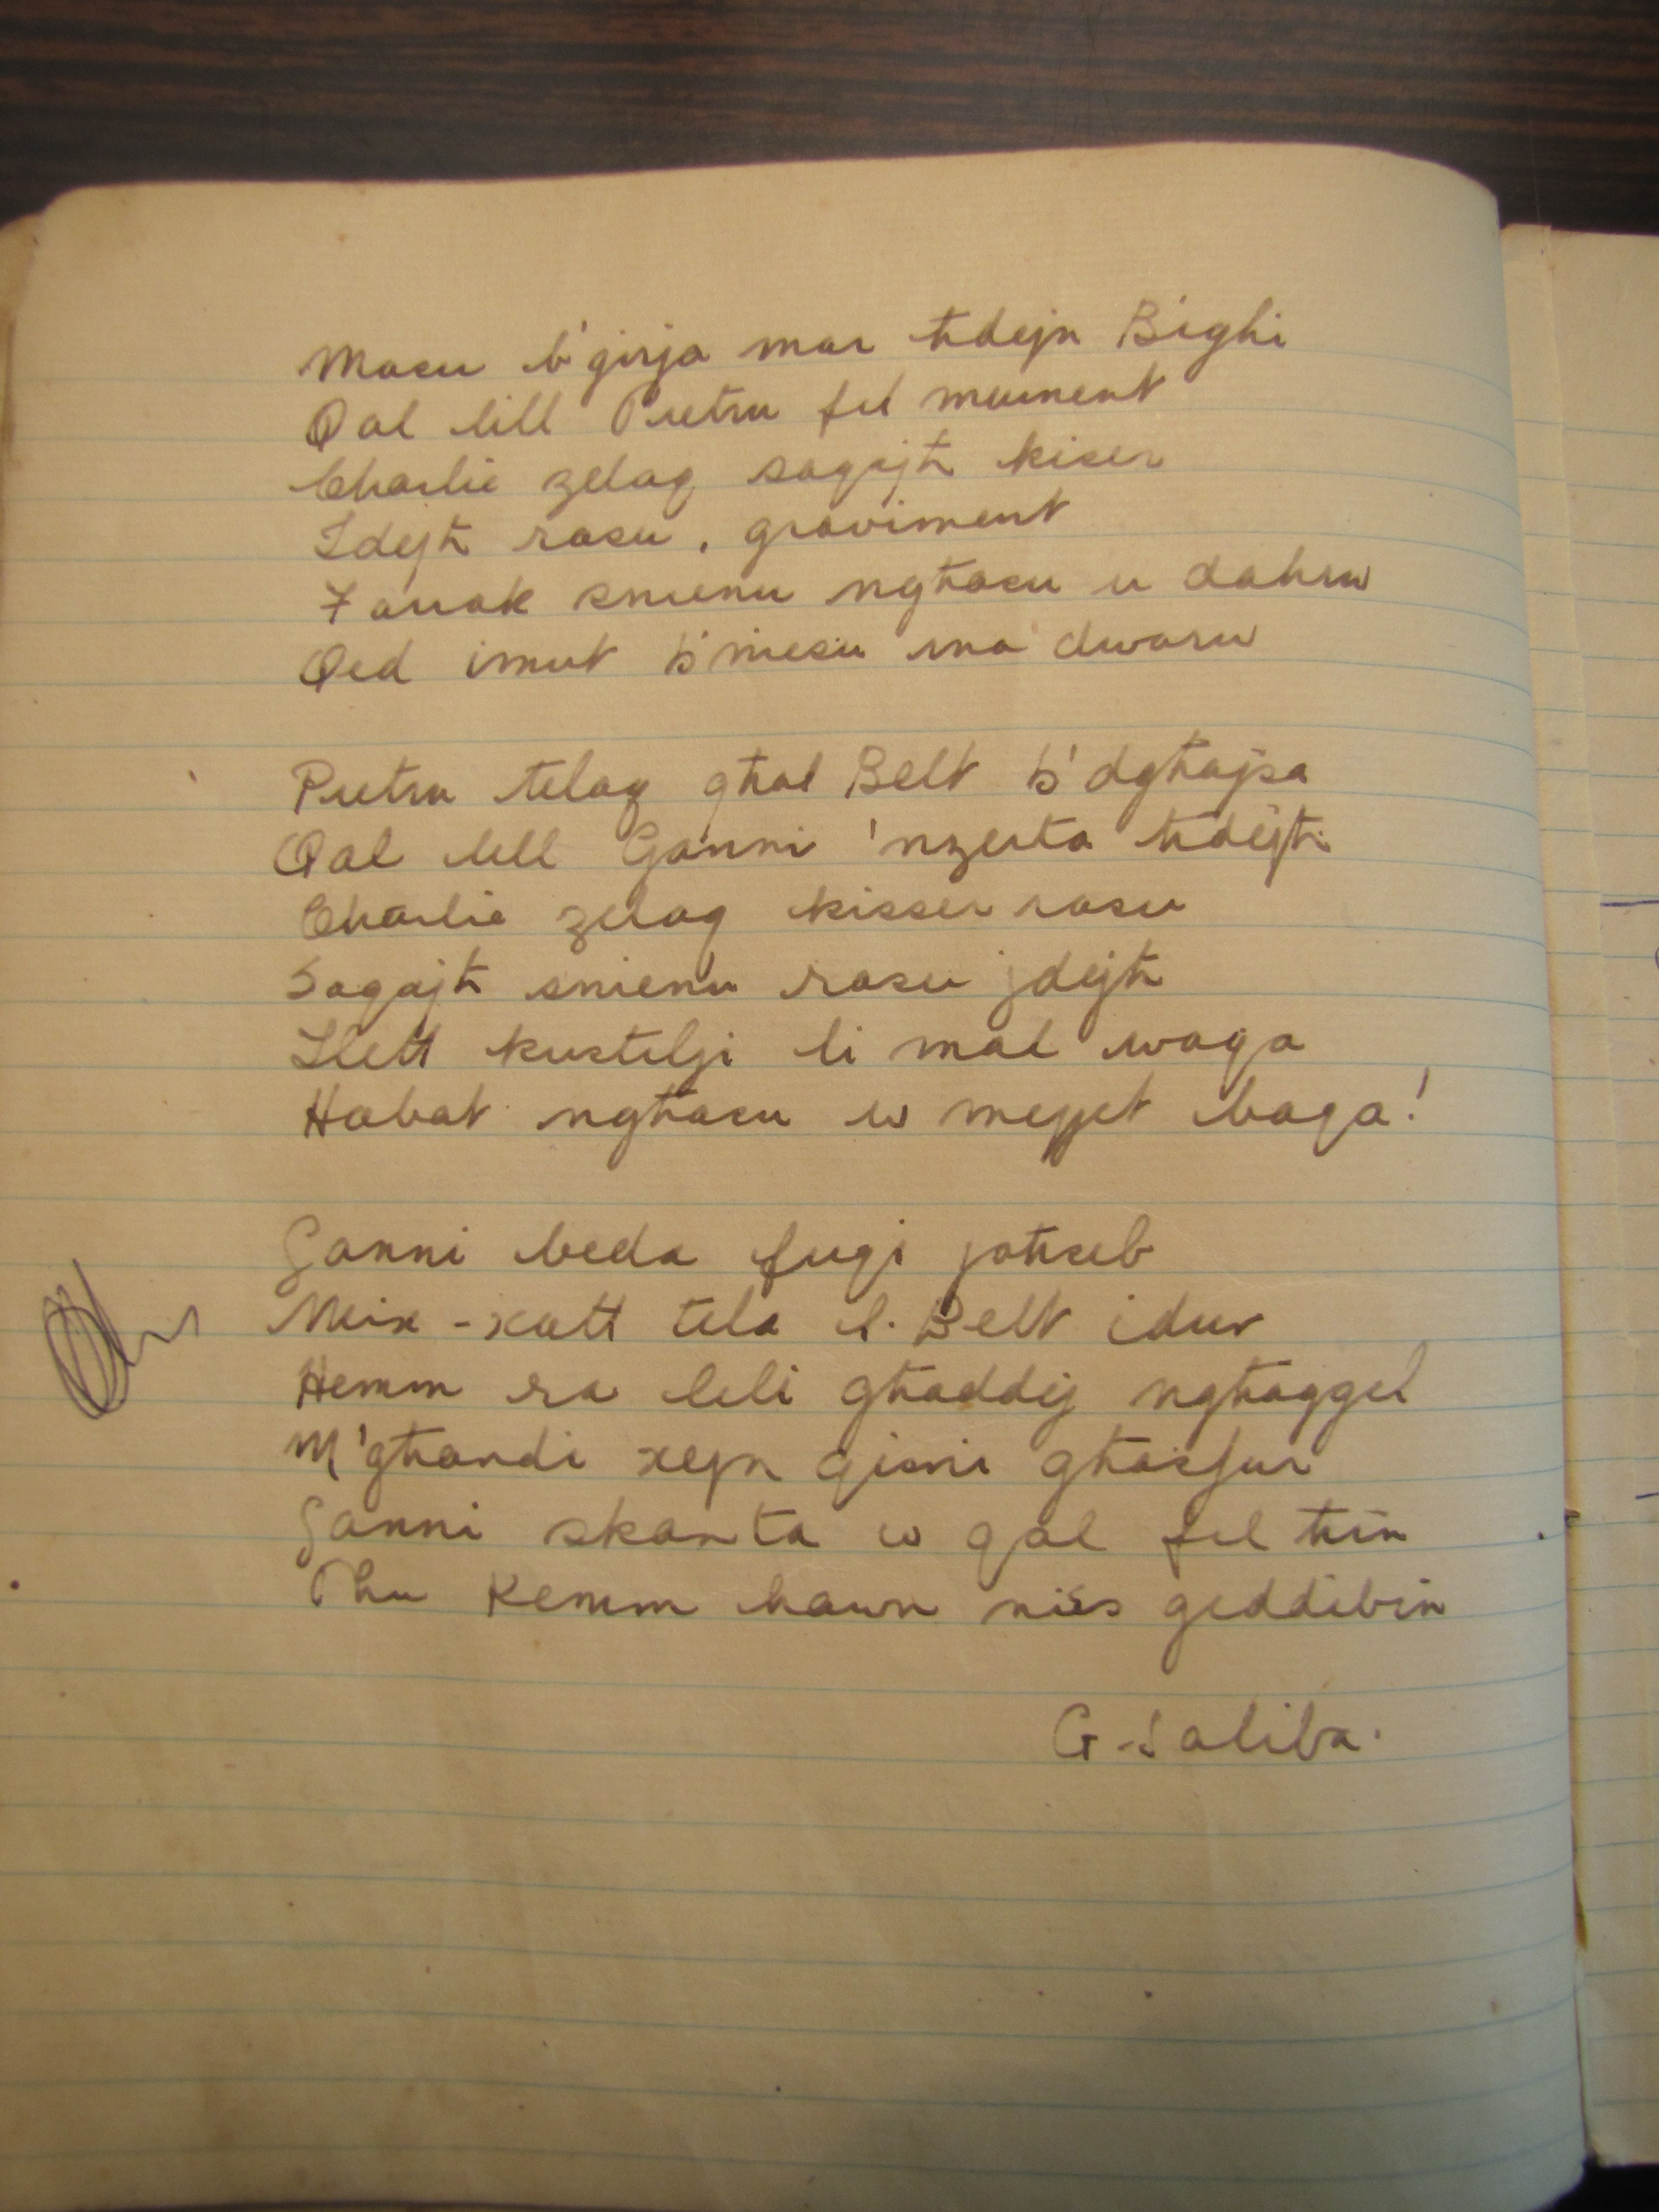 Masu b'ġirja mar ħdejn Bighi
Qal lill Pietru fil mument
Charlie żelaq saqajħ kiser
Idejħ rasu, graviment
Farrak snienu ngħasu u dahru
Qed imut b'niesu ma dwaru
Pietru telaq għal Belt b'dgħajsa
Qal lill Ġanni 'nzerta ħdejħ
Charlie żelaq kisser rasu
Saqajħ snienu rasu jdejħ
Sitt kustilji li mal waqa
Habat ngħasu w mejjet baqa!
Ġanni beda fuqi jaħseb
Mix-xatt tela l-Belt idur
Hemm ra lili għaddej ngħaġġel
M'għandi xejn qisni għasfur
Ġanni skanta w qal fil ħin
Phu Kemm hawn nies giddibin
G. Saliba.